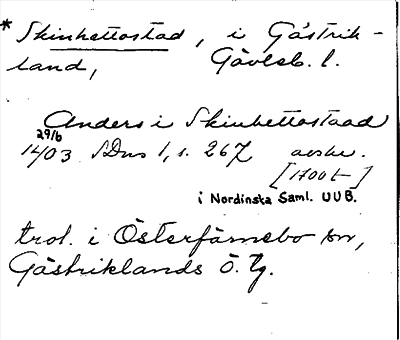 * Skinhettostad, i Gästrik-
land, Gävleb. l.
Anders i Skinhettostaad
29/6
1403 SDns 1, s. 267 avskr.
[1700t-]
i Nordinska Saml. UUB.
trol. i Österfärnebo sn,
Gästriklands Ö. Tg.